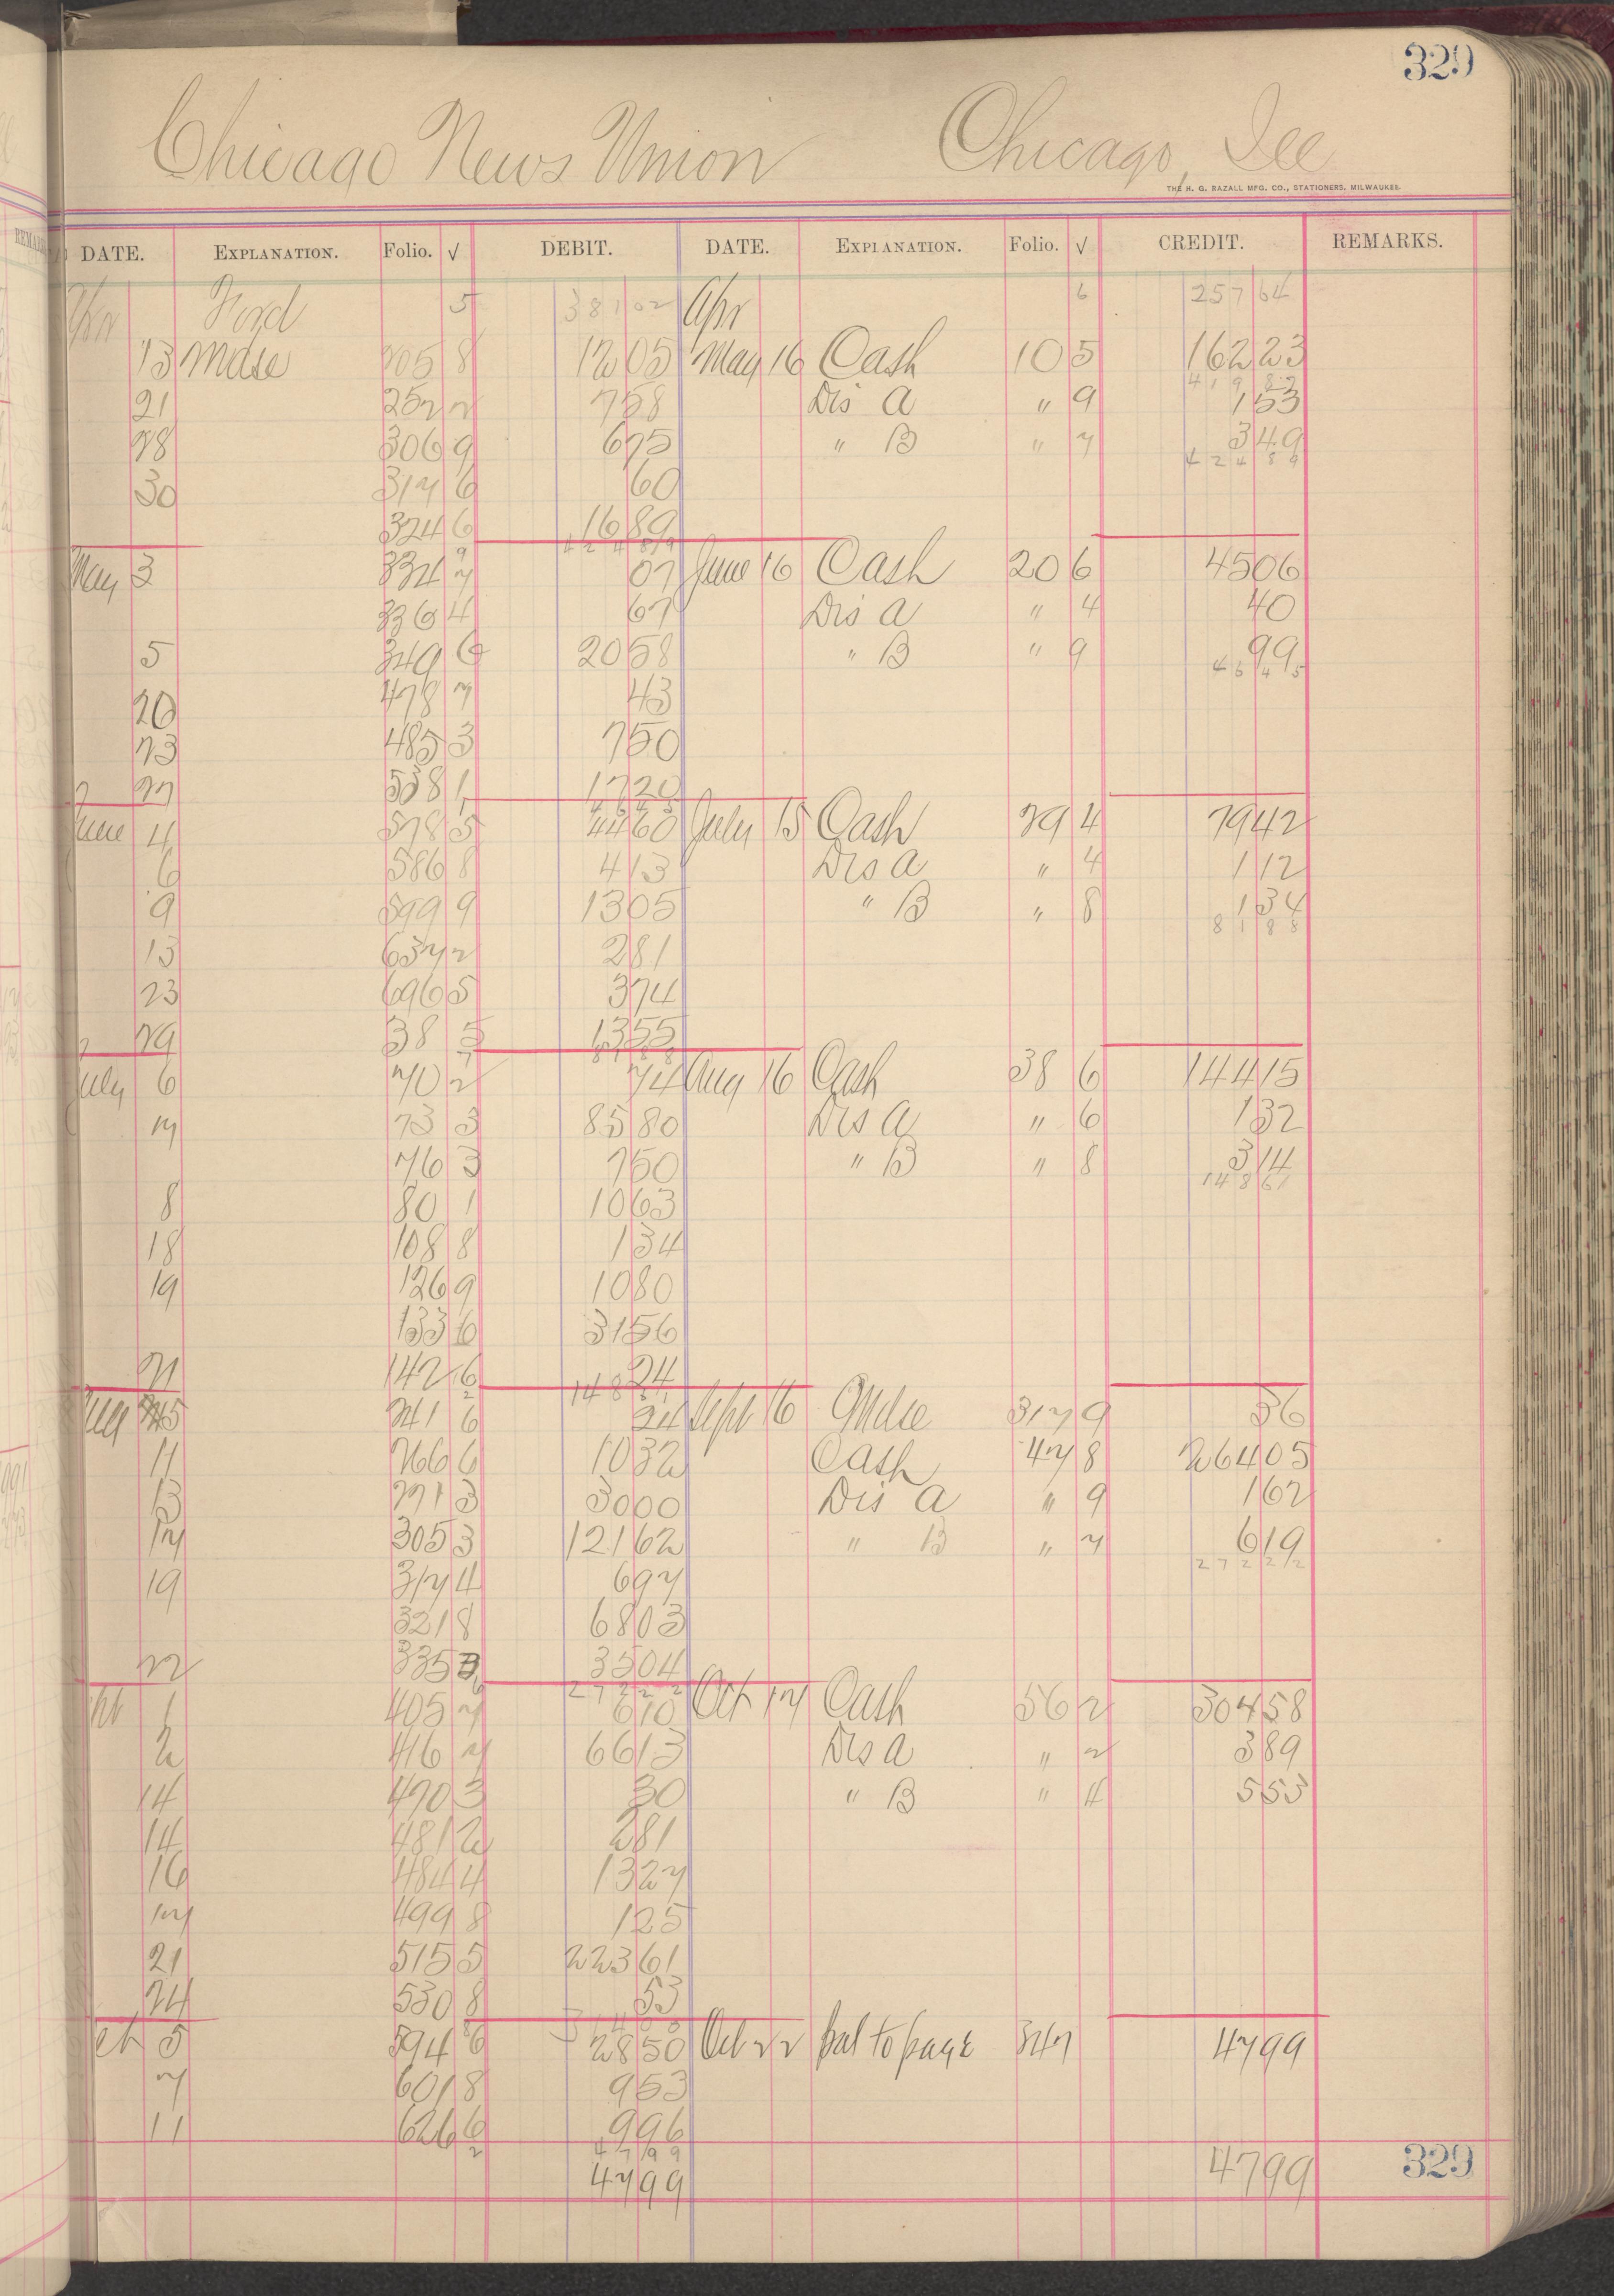 329
Chicago News Union Chicago, Ill
THE H. G. RAZALL MFG. CO., STATIONERS, MILWAUKEE.
DATE. EXPLANATION. Folio. √ DEBIT. DATE. EXPLANATION. Folio. √ CREDIT. REMARKS.
Apr Ford 5 381 02 Apr 6 257 64
13 Mdse 205 8 12 05 May 16 Cash 10 5 162 23
419 82
21 252 2 7 58 Dis A " 9 1 53
28 306 9 6 75 " B " 7 3 49
424 84
30 317 6 60
324 6 16 89
424 84
May 3 334 7 07 June 16 Cash 20 6 45 06
336 4 67 Dis A " 4 40
5 349 6 20 58 " B " 9 99
46 45
20 478 7 43
23 485 3 7 50
27 538 1 17 20
46 45
June 4 578 5 44 60 July 15 Cash 29 4 79 42
6 586 8 4 13 Dis A " 4 1 12
9 599 9 13 05 " B " 8 1 34
81 88
13 637 2 2 81
23 696 5 3 74
29 38 5 13 55
81 88
July 6 70 2 74 Aug 16 Cash 38 6 144 15
7 73 3 85 80 Dis A " 6 1 32
76 3 7 50 " B " 8 3 14
148 61
8 80 1 10 63
18 108 8 1 34
19 126 9 10 80
133 6 31 56
21 142 6 24
148 61
Aug 5 241 6 24 Sept 16 Mdse 317 9 36
11 266 6 10 32 Cash 47 8 264 05
13 271 3 30 00 Dis A " 9 1 62
17 305 3 121 62 " B " 7 6 19
272 22
19 317 4 6 97
321 8 68 03
22 335 3 35 04
272 22
Sept 1 405 7 6 10 Oct 17 Cash 56 2 304 58
2 416 7 66 13 Dis A " 2 3 89
14 470 3 30 " B " 4 5 53
14 481 2 2 81
16 484 4 13 27
17 499 8 1 25
21 515 5 223 61
24 530 8 53
314 00
Oct 5 594 6 28 50 Oct 22 Bal to page 347 47 99
7 601 8 9 53
11 626 6 9 96
47 99
47 99 47 99
329